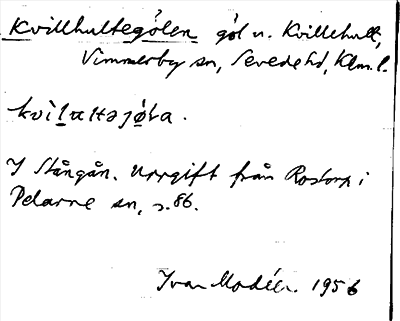 Kvillhultegölen göl n. Kvillehult,
Vimmerby sn, Sevede hd, Klm. l.
kvìlultəjö̀la.
I Stångån. Uppgift från Rostorp i
Pelarne sn, s. 86.
Ivar Modéer. 1956